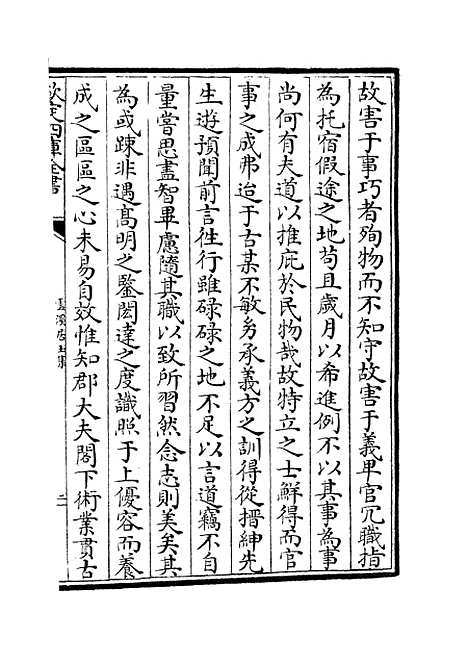 故害于事巧者殉物而不知守故害于義卑官冗職指
為托宿假途之地苟且歲月以希進例不以其事為事
尚何有夫道以推庇於民物哉故特立之士鮮得而官
事之成弗迨于古某不敏夯承義方之訓得從搢紳先
生遊預聞前言徃行雖碌碌之地不足以言道竊不自
量嘗思盡智畢慮隨其職以致所習然念志則美矣其
為或踈非遇髙明之鑒閎達之度識照于上優容而養
成之區區之心未易自效惟知郡大夫閣下術業貫古
欽定四庫全書
居士集
二